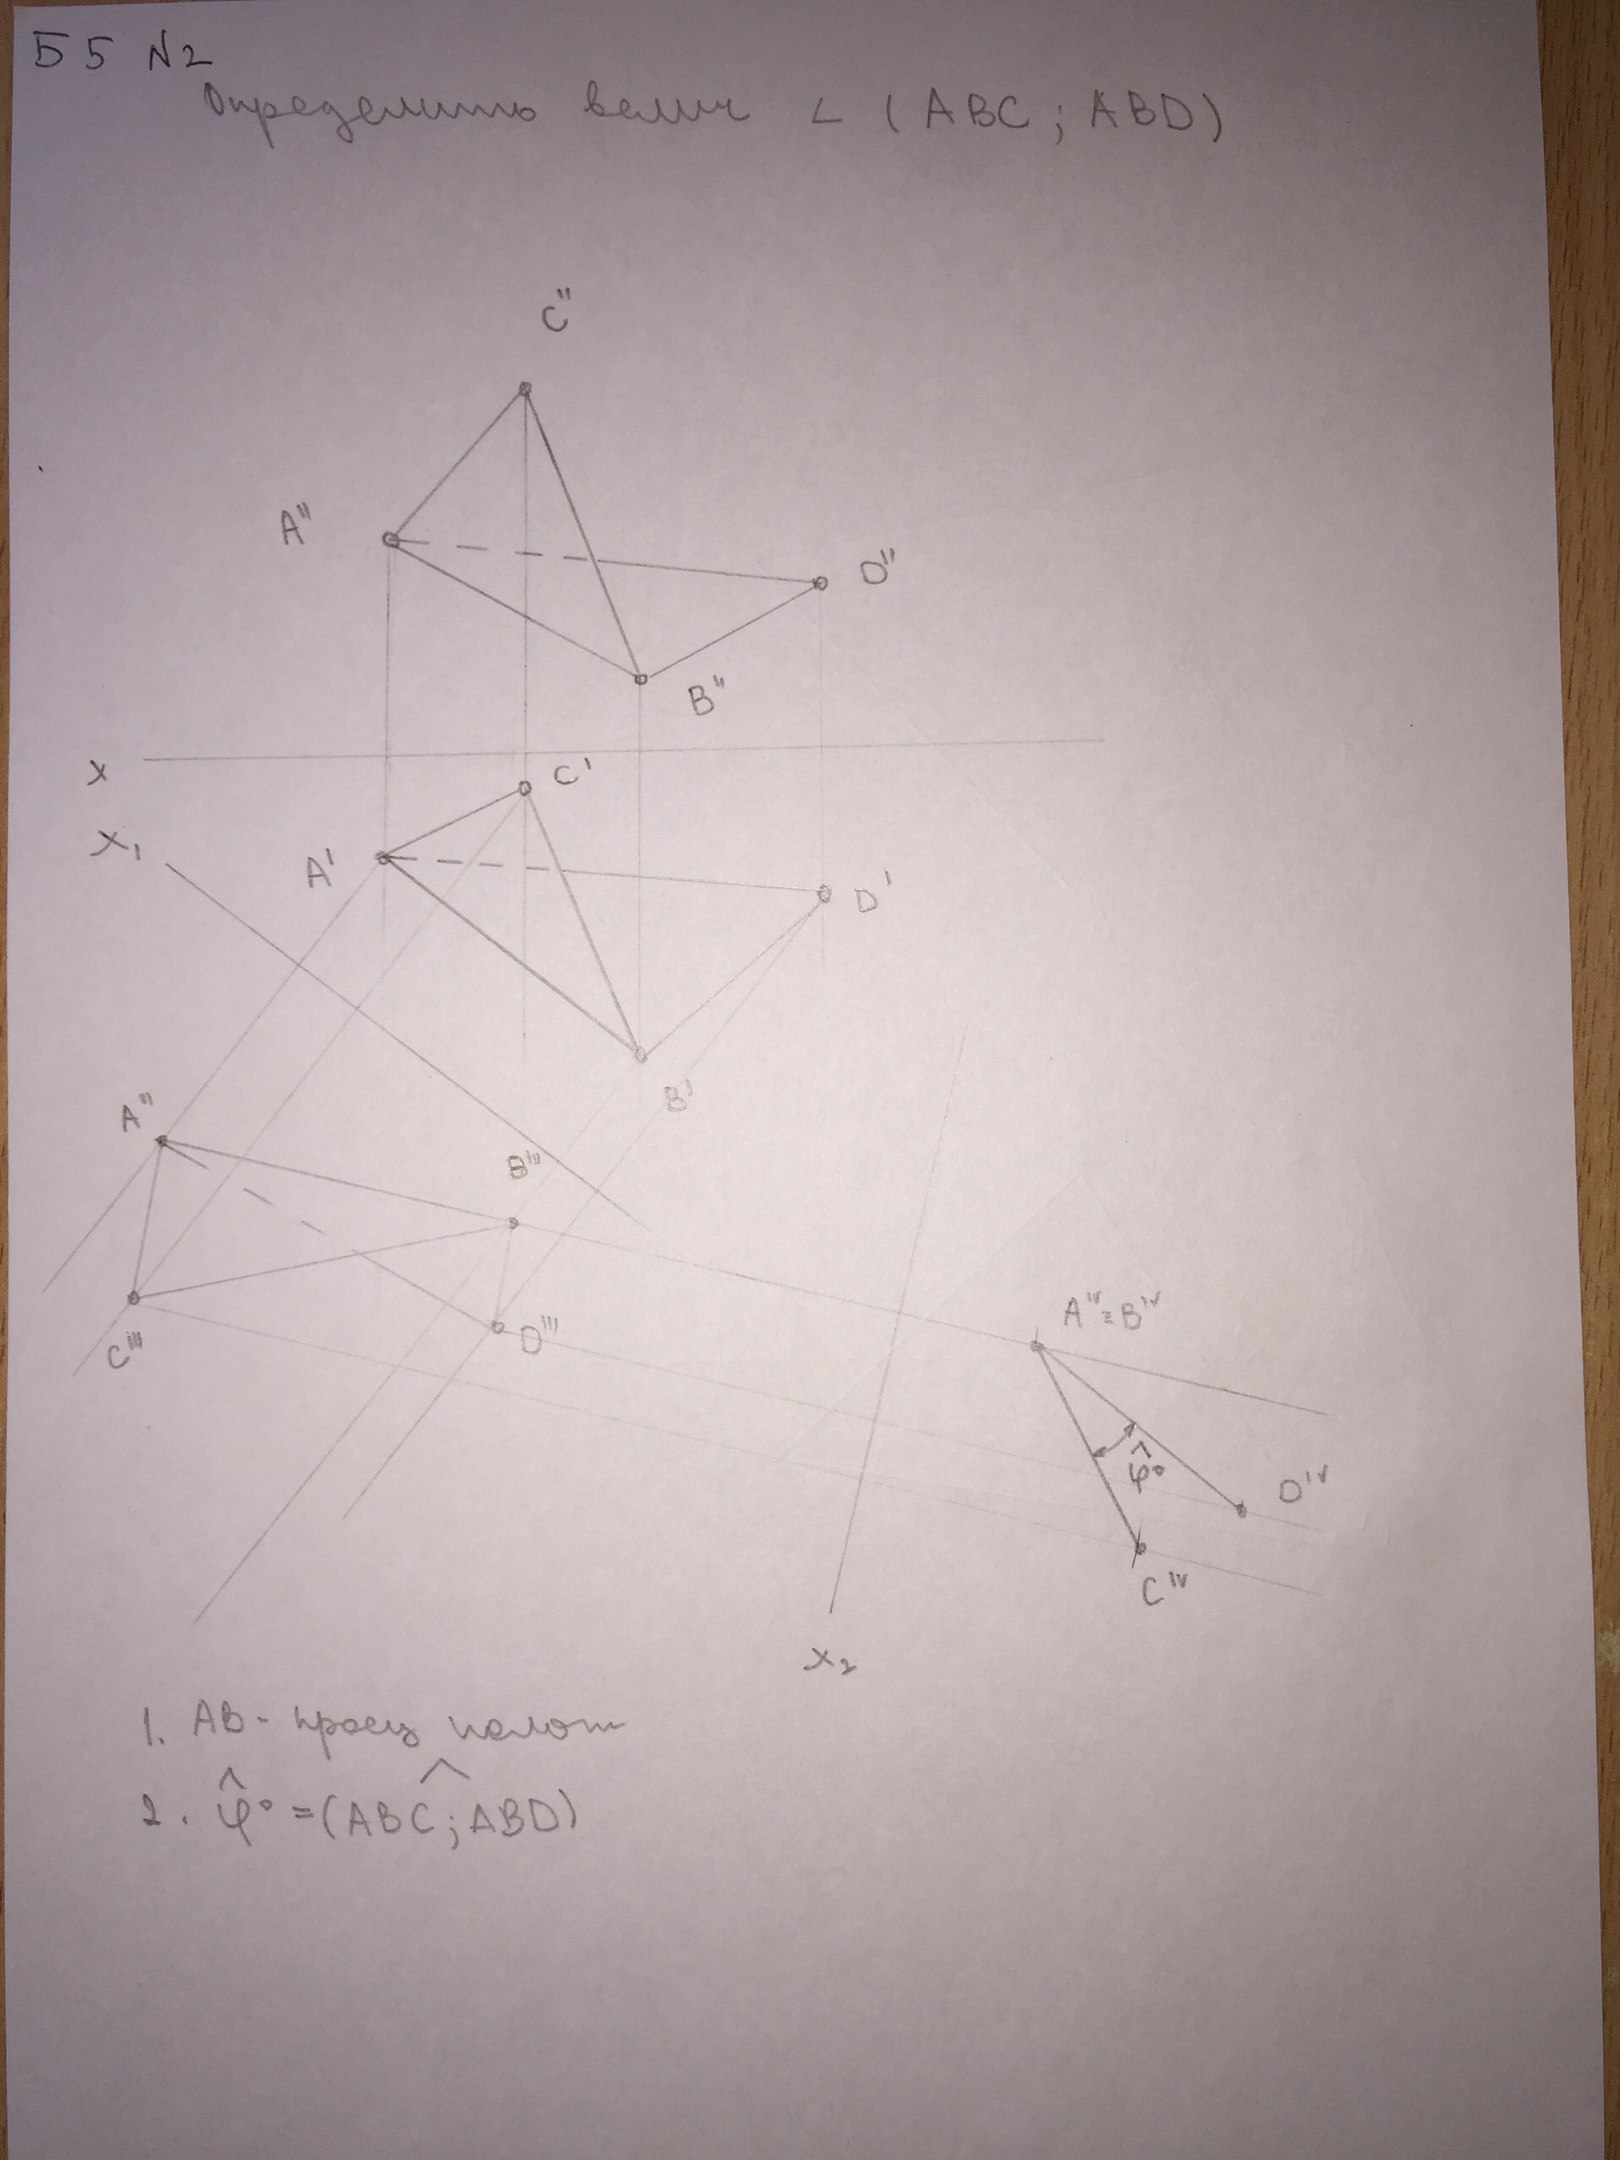 Б5 N2
Определить велич ∠ (ABC; ABD)
C"
A"
D"
B"
x
C'
x₁
A'
D'
B'
A"
B'''
A^IV ≡ B^IV
D'''
C'''
φ̂°
D^IV
C^IV
x₂
1. AB - проец полож
2. φ̂° = (ABC; ABD)